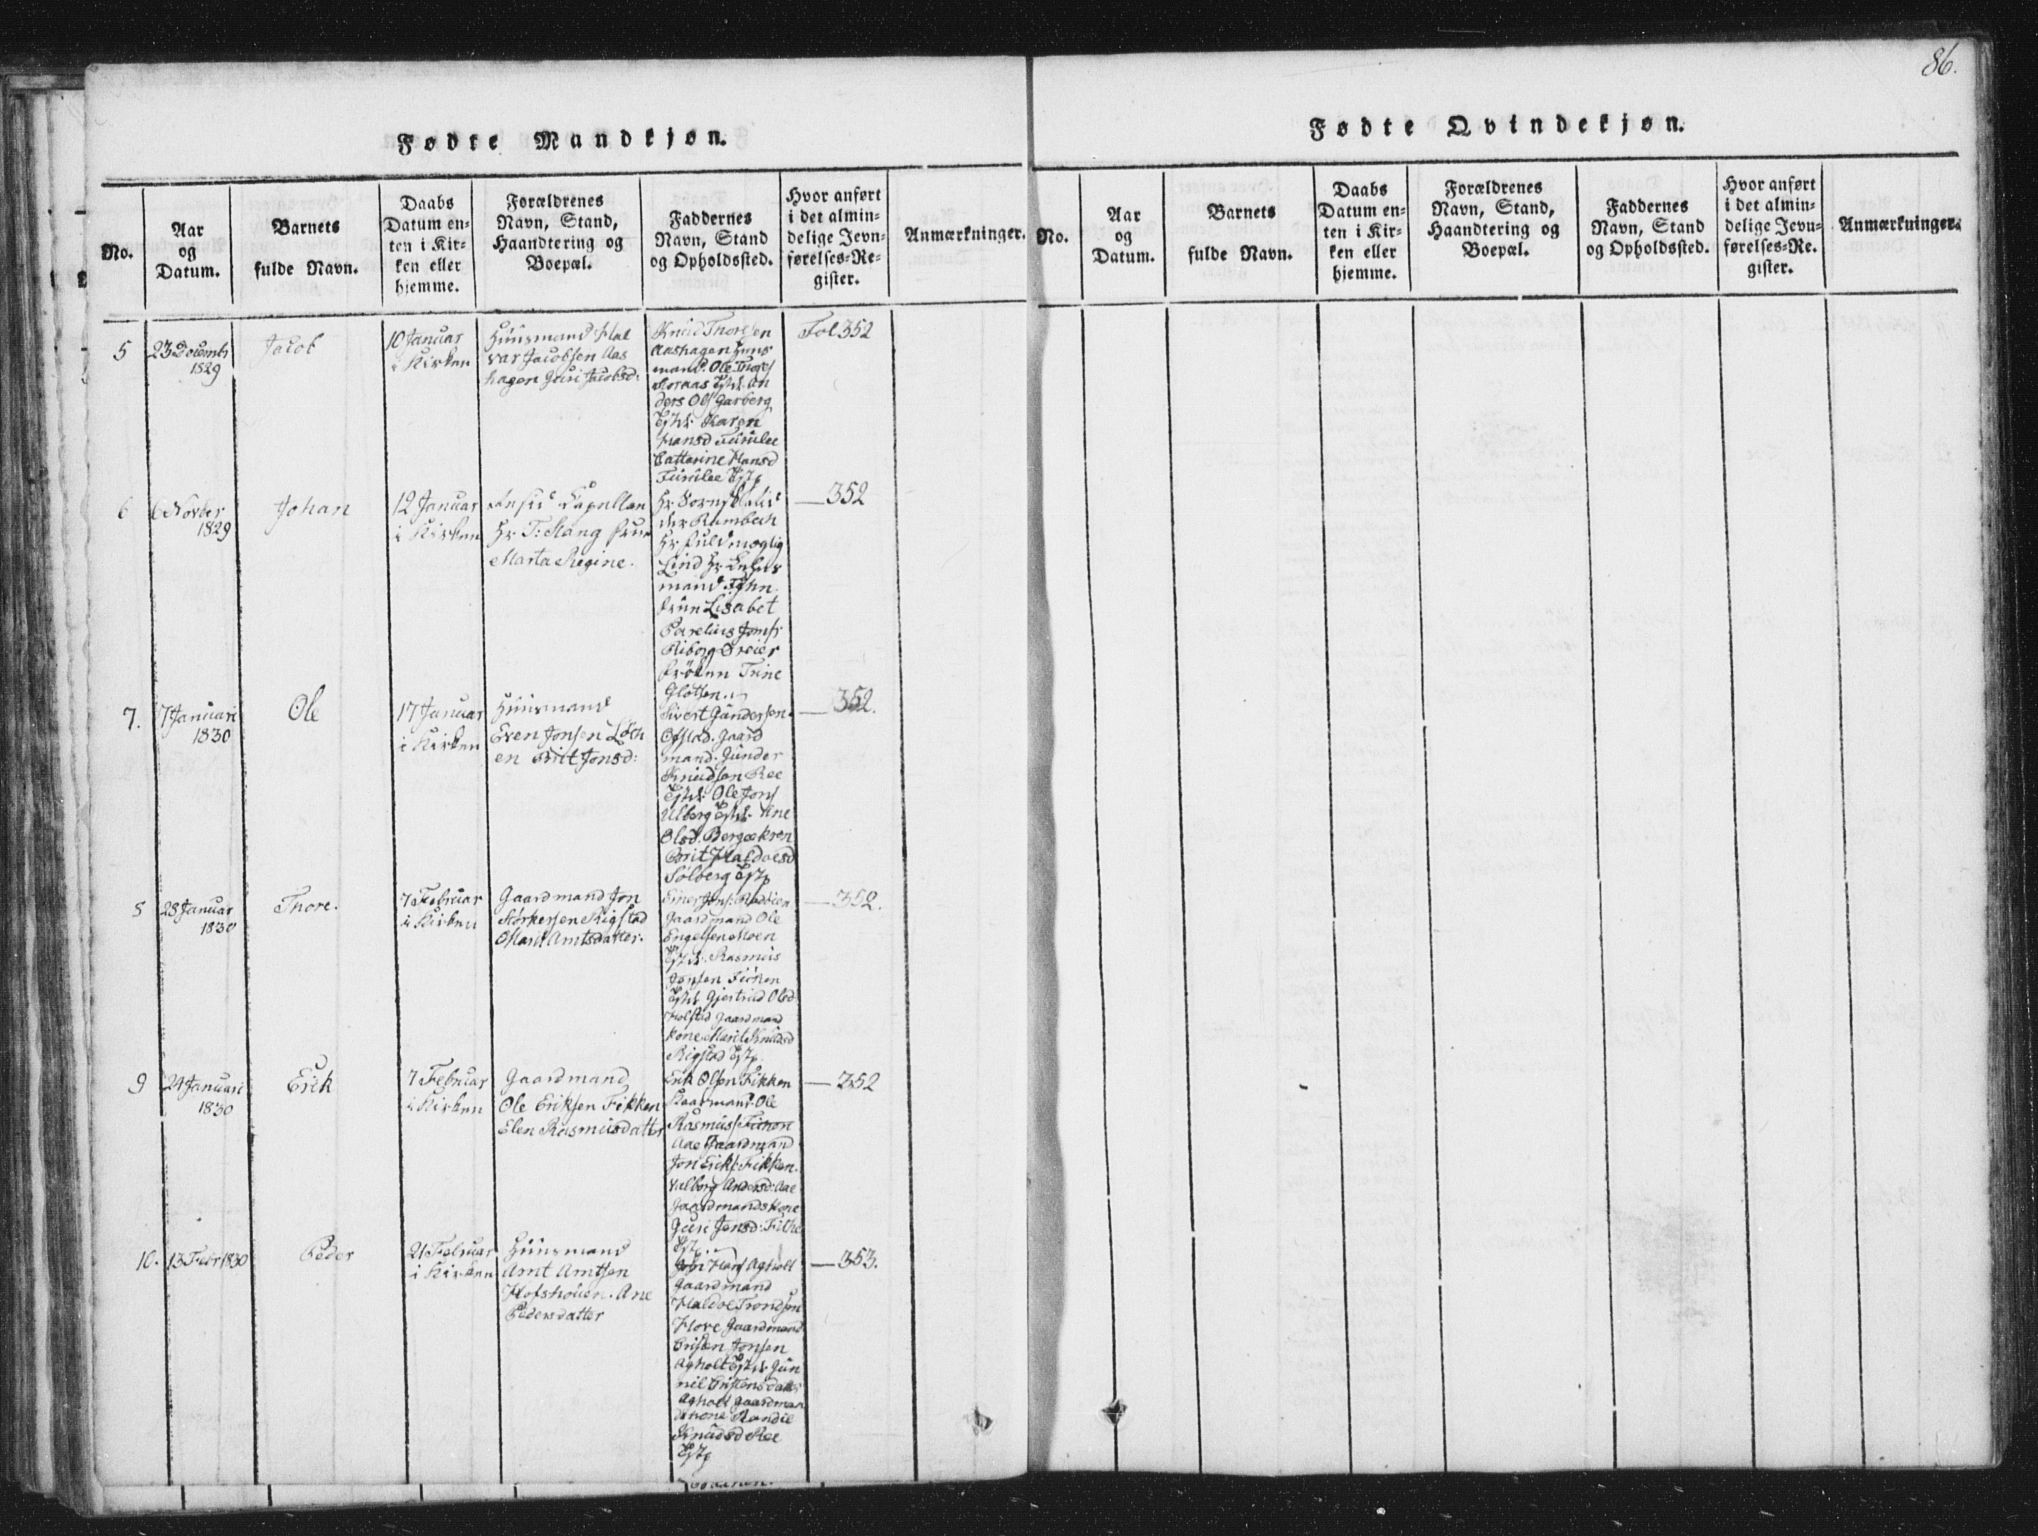 86.
Fødte Mandkjøn.
No.
Aar
og
Datum.
Barnets
fulde Navn.
Daabs
Datum en-
ten i Kir-
ken eller
hjemme.
Forældrenes
Navn, Stand,
Haandtering og
Boepæl.
Faddernes
Navn, Stand
og Opholdssted.
Hvor anført
i det almin-
delige Jevn-
førelses-Re-
gister.
Anmærkninger.
5
23 Decemb
1829
Jacob
10 Januar
i Kirken
Huusmand Hal
var Jacobsen Aas
hagen Guri Jacobsd:
Knud Thoresen
Aashagen Huus
mand. Ole Thores
Anders Ols Garberg
Karen
Hansd Fuulee
Cattarine Hansd
Fuulee
Fol 352
6
6 Novber
1829
Johan
12 Januar
i Kirken
Capellan
Hr. T: Stang Frue
Marta Regine.
Rambech
Hr. Fuldmægtig
Lind Hr. Lens
mand
Fruen Lisabet
Parelius Jomfr
Riborg Dreier
Frøken Trine
—352
7.
17 Januari
1830
Ole
17 Januar
i Kirken
Huusmand
Even Jonsen Løch
en Brit Jonsd:
Sivert Gundersen
Ofstad. Gaard
mand. Gunder
Knudsen Ree
Ole Jons
Ulberg Ane
Olsd. Bergækren
Brit Haldoesd
Solberg
—352.
8
28 Januar
1830
Thore.
7 Februar
i Kirken
Gaardmand Jon
Størkersen Rigstad
Marit Amtsdatter.
Gaardmand Ole
Engelsen Moen
Rasmus
Jonsen
Gjertrud Olsd
Gaardmand
kone Marit Knudsd
Rigstad
—352.
9
24 Januari
1830
Erik
7 Februar
i Kirken
Gaardmand
Ole Eriksen Fikken
Elen Rasmusdatter
Erik Olsen Fikken
Gaarmand Ole
Rasmus
Aae Gaardmand
Jon Eriks Fikken.
Valborg Andersd. Aae
Gaardmandskone
Guri Jonsd:
—352
10.
13 Febr 1830
Peder
21 Februar
i Kirken
Huusmand
Amt Amtsen
Hofshouen. Ane
Pedersdatter
Jon Hans Agholt
Gaardmand
Haldoe Trondsen
Hove Gaardmand
Cristen Jonsen
Agholt Gun
nil Cristensdatter
Agholt Gaardman
dskone Randie
Knudsd Ree
—353.
Fødte Qvindekjøn.
No.
Aar
og
Datum.
Barnets
fulde Navn.
Daabs
Datum en-
ten i Kir-
ken eller
hjemme.
Forældrenes
Navn, Stand,
Haandtering og
Boepæl.
Faddernes
Navn, Stand
og Opholdssted.
Hvor anført
i det almin-
delige Jevn-
førelses-Re-
gister.
Anmærkninger.